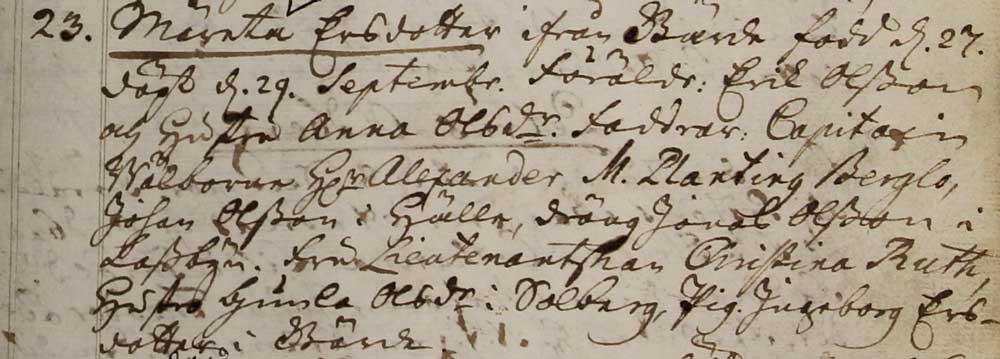 23. Märeta Ersdotter ifrån Bärde född d. 27.
döpt d. 29. Septembr. Föräldr: Erik Olsson
og Hustru Anna Olsdr. Faddrar: Capitain
Wälborne Hr Alexander M. Planting Berglo,
Johan Olsson i Hälle, dräng Jonas Olsson i
Laßbyn. Fru Lieutenantskan Christina Ruth,
Hustru Gunla Olsdr i Solberg, Pig. Ingeborg Ers-
dotter i Bärde.